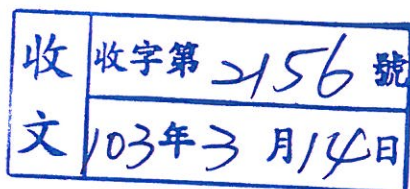 收文
收字第2156號
103年3月14日